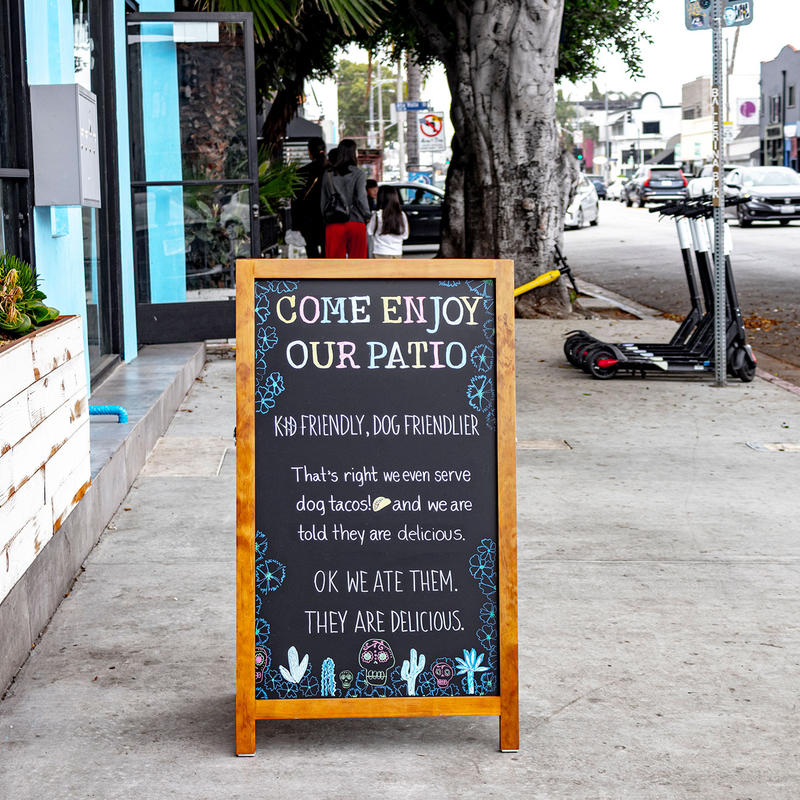 COME ENJOY
OUR PATIO
KID FRIENDLY, DOG FRIENDLIER
That's right we even serve
dog tacos! and we are
told they are delicious.
OK WE ATE THEM.
THEY ARE DELICIOUS.